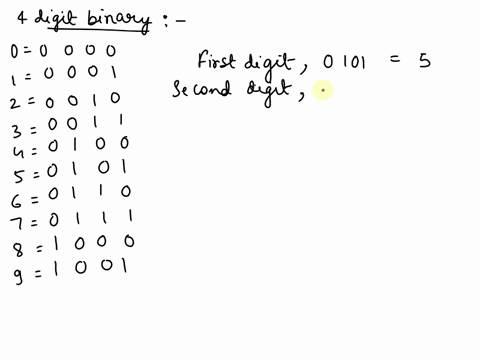 4 digit binary :-
0 = 0 0 0 0
1 = 0 0 0 1
2 = 0 0 1 0
3 = 0 0 1 1
4 = 0 1 0 0
5 = 0 1 0 1
6 = 0 1 1 0
7 = 0 1 1 1
8 = 1 0 0 0
9 = 1 0 0 1
First digit, 0101 = 5
Second digit,